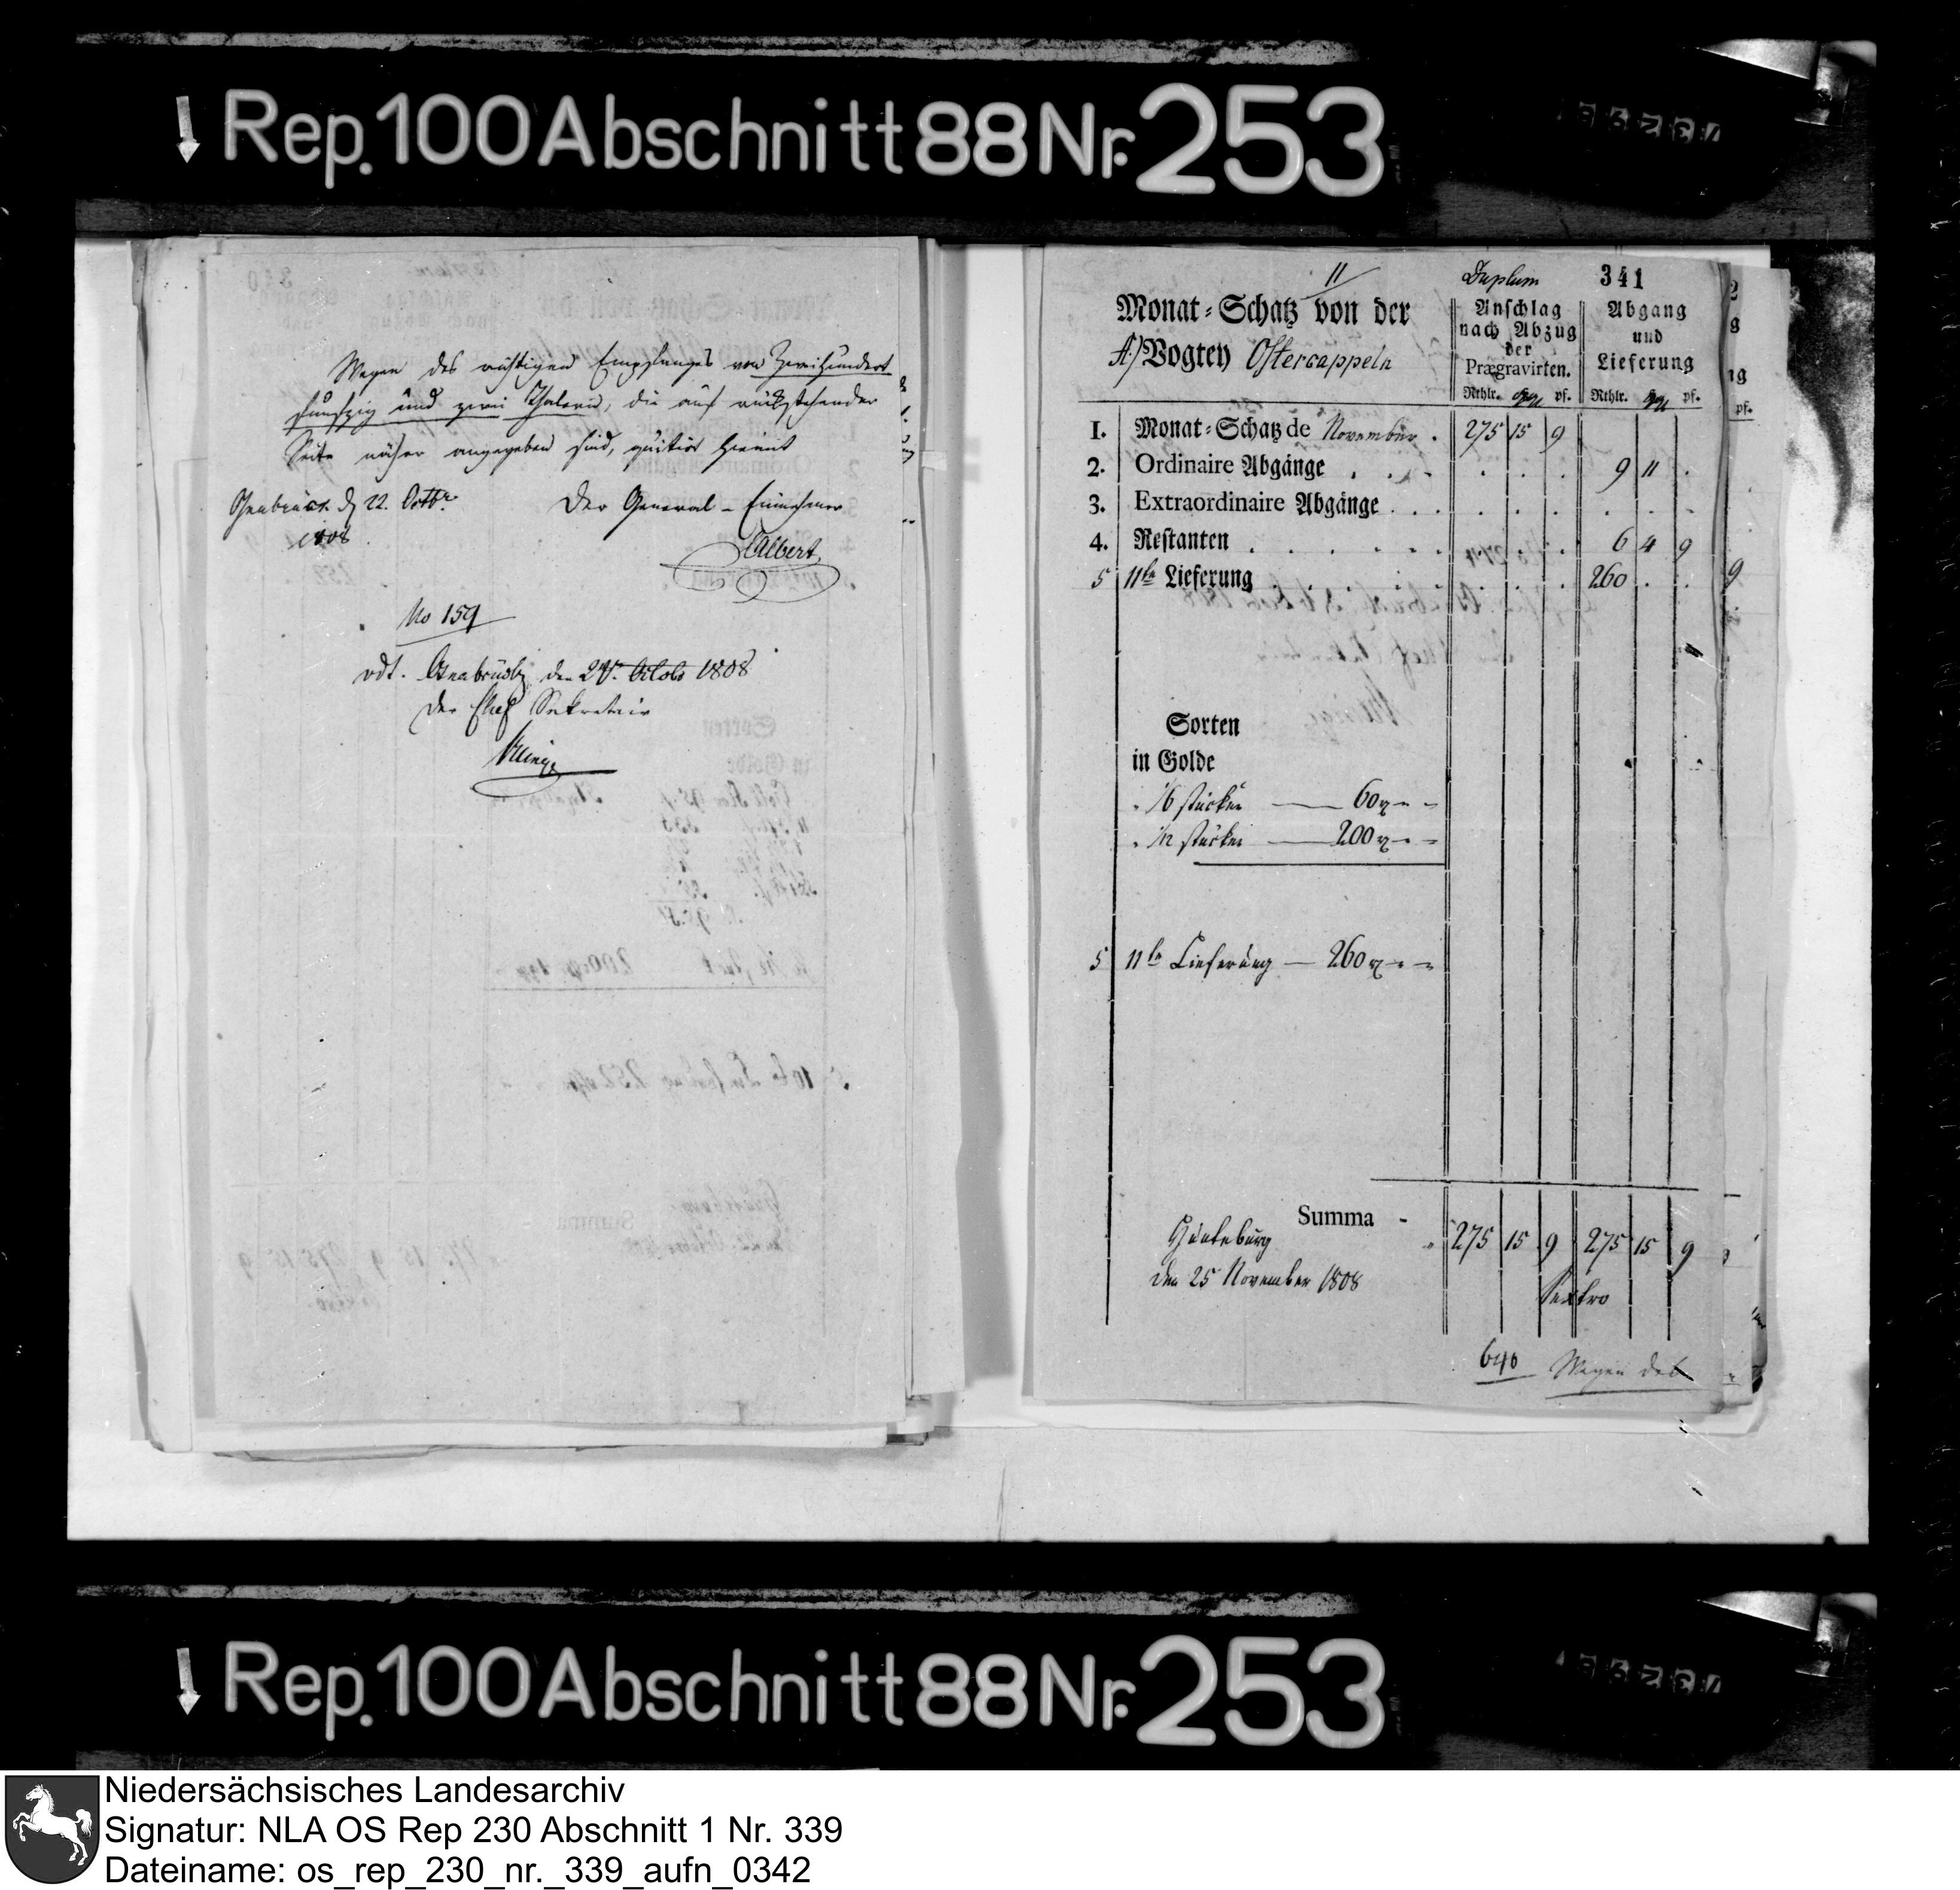 Rep. 100 Abschnitt 88 Nr. 253
Wegen des richtigen Empfanges von Zweihundert
funfzig und zwei Thalern, die auf rückstehender
Seite näher angegeben sind, quitirt hiemit
Osnabrück d 22. Octbr
1808
Der General-Einnehmer
Albert
No 159
vdt. Osnabrück den Octobr 1808
Der Chef Sekretair
11
Duplum
341
Monat-Schatz von der
A.) Vogtey Ostercappeln
Anschlag
nach Abzug
der
Prægravirten.
Rthlr. pf.
Abgang
und
Lieferung
Rthlr. pf.
1. Monat-Schatz de November . 275 15 9
2. Ordinaire Abgänge . . . 9 11 .
3. Extraordinaire Abgänge . . .
4. Restanten . . . . . . 6 4 9
5 11te Lieferung 260 . .
Sorten
in Golde
1/6 stücken — 60
1/12 stücken — 200
5 11te Lieferung — 260
Summa - 275 15 9 275 15 9
den 25 November 1808
640 Wegen des
Rep. 100 Abschnitt 88 Nr. 253
Niedersächsisches Landesarchiv
Signatur: NLA OS Rep 230 Abschnitt 1 Nr. 339
Dateiname: os_rep_230_nr._339_aufn_0342